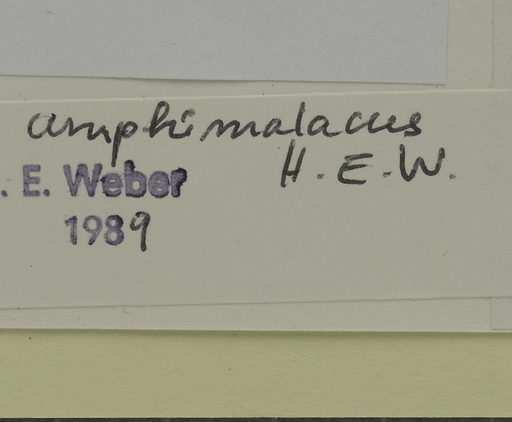 amphimalacus
H. E. W.
. E. Weber
1989